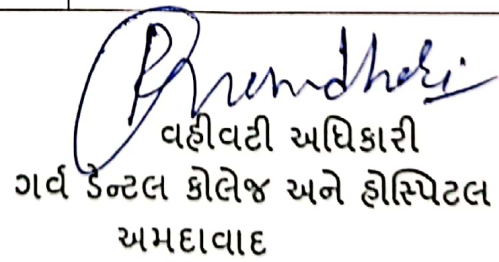 વહીવટી અધિકારી
ગર્વ ડેન્ટલ કોલેજ અને હોસ્પિટલ
અમદાવાદ